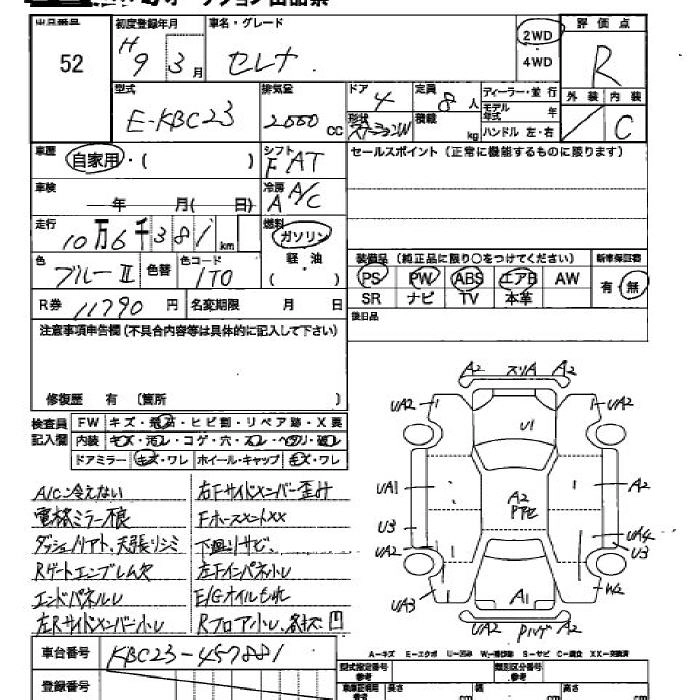 出品番号 初度登録年月 車名・グレード 2WD 評価点
52 H9 3月 セレナ 4WD R
型式 排気量 ドア 定員 ディーラー・並行 外装 内装
E-KBC23 2000CC 4 8人 モデル年式 年 / C
形状 ステーションW 積載 kg ハンドル 左・右
車歴 自家用・( ) シフト FAT セールスポイント(正常に機能するものに限ります)
車検 年 月( 日) 冷房 A A/C
走行 10万6千381km 燃料 ガソリン 軽油 ( )
色 ブルーII 色替 色コード 1T0 装備品(純正品に限り○をつけてください) 新車保証書
PS PW ABS エアB AW 有・無
R券 11790円 名変期限 月 日 SR ナビ TV 本革
注意事項申告欄(不具合内容等は具体的に記入して下さい) 後日品
修復歴 有 〔箇所 〕
検査員記入欄 FW キズ・飛石・ヒビ割・リペア跡・X要
内装 キズ・汚レ・コゲ・穴・スレ・ヘタリ・破レ
ドアミラー キズ・ワレ ホイール・キャップ キズ・ワレ
A/C冷えない 右Fサイドメンバー歪み
電格ミラー不良
下廻りサビ、
Rゲートエンブレム欠 左Fインパネ小レ
エンドパネルレ E/Gオイルもれ
左Rサイドメンバー小レ Rフロア小レ、
車台番号 KBC23-457881
登録番号
A2 スリA A2
UA2 UA2
U1
UA1 A2 A2
U3 UA4
UA2 U3
W2
UA3 A1
UA2 A2
A-キズ E-エクボ U-凹み W-補修跡 S-サビ C-腐食 XX-交換済
型式指定番号 参考 類別区分番号 参考
長さ cm 幅 cm 高さ cm